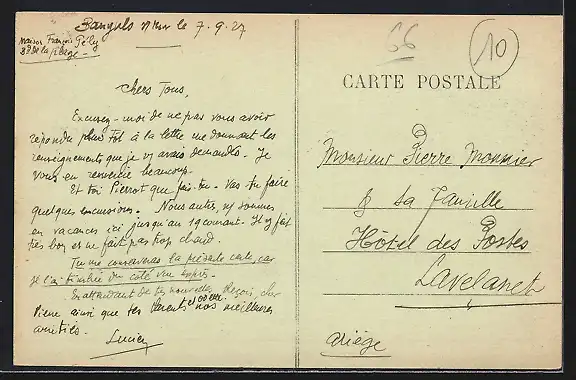 Banyuls s/ Mer le 7.9.27
Maison François Pély
Bd de la Plage
Chers Tous,
Excusez-moi de ne pas vous avoir
répondu plus tôt à la lettre me donnant les
renseignements que je vs avais demandés. Je
vous en remercie beaucoup.
Et toi Pierrot que fais-tu. Vas-tu faire
quelques excursions. Nous autres, ns sommes
en vacances ici jusqu'au 19 courant. Il y fait
très bon et ne fait pas trop chaud.
Tu me conserveras la présente carte, car
je l'ai timbrée du côté vue exprès.
En attendant de tes nouvelles reçois, cher
Pierre ainsi que tes Parents nos meilleures
amitiés.
Lucien
66
10
CARTE POSTALE
Monsieur Pierre Monnier
& sa famille
Hôtel des Postes
Lavelanet
Ariège